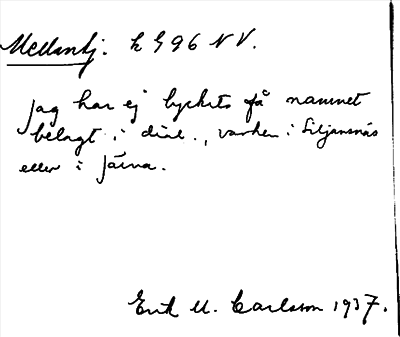 Mellantj. k 996 NV.
Jag har ej lyckats få namnet
belagt i dial., varken i Siljansnäs
eller i Järna.
Erik U. Carlsson 1937.